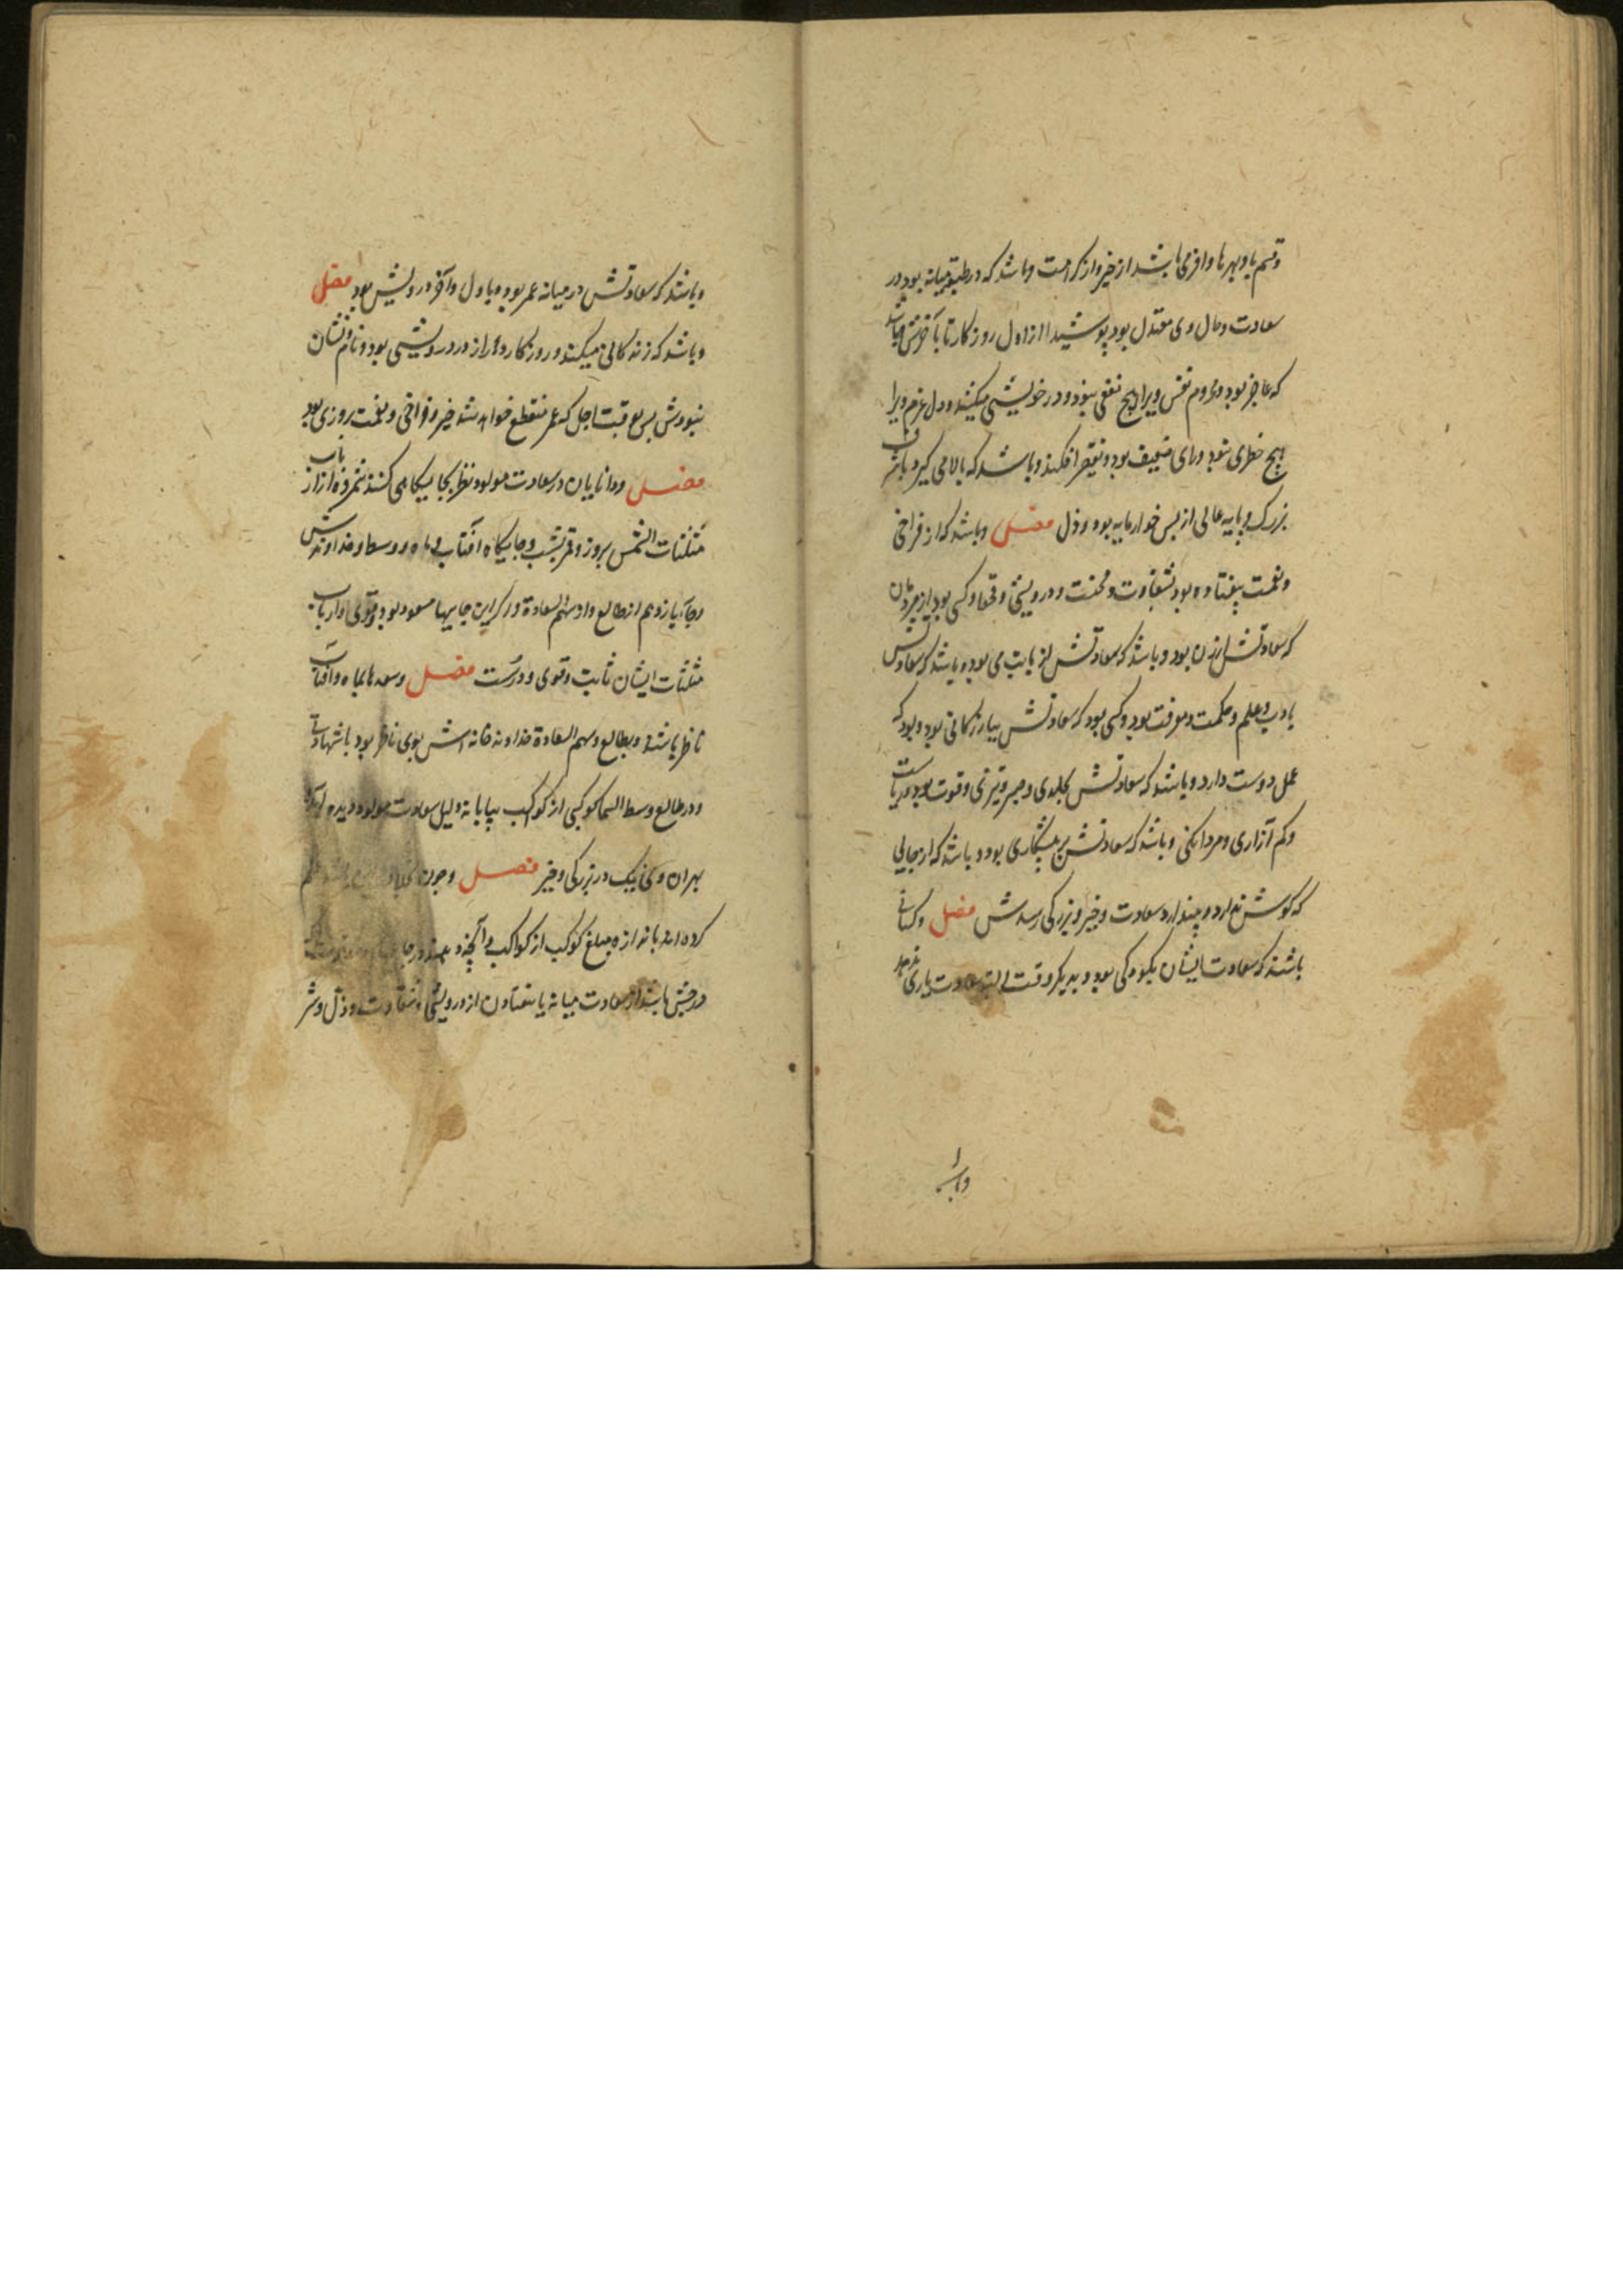 وقسم با وبهرها وافر می باشد از خیر واز کرامت وباشد که در طبقه میانه بود در
سعادت وحال وی معتدل بود پوشیدا از اول روزکار تا بآخرش وباشد
که عاجز بود ومردم نفس ویرا هیچ نفعی نبود ودر خویشی میکنند ودل مردم ویرا
هیچ خطری نبود ورای ضعیف بود وباشد که بالا می کیرد
بزرک وپایه عالی از پس خوارمایه بود وذل فصل وباشد که از فراخی
ونعمت بیفتاده بود بشقاوت ومحنت ودرویشی وکسی بود از مردمان
که سعادتش از زن بود وباشد که سعادتش از می بود وباشد که سعادتش
بادب وعلم وحکمت ومعرفت بود وکسی بود که سعادتش ببازرکانی بود وبود که
عمل دوست دارد وباشد که سعادتش بجلدی وصبر وتیزی وقوت بود وریاست
وکم آزاری ومردانکی وباشد که سعادتش به پیشکاری بود وباشد که از جایی
که کوشش ندارد وپندارد سعادت وخیر وبزرکی رسدش فصل وکسانی
باشند که سعادت ایشان بکودکی بود وبدیکر وقت البته سعادت یاری ندهد
وباشد
وباشد که سعادتش در میانه عمر بود وباول وآخر درویش بود فصل
وباشد که زندکانی میکند وروزکار دراز ودر درویشی بود ونام ونشان
نبودش پس بوقت اجل که عمر منقطع خواهد شد خیر وفراخی ونعمت روزی بود
فصل ودانایان در سعادت مولود نظر بجایکاه می کنند از ارباب
مثلثات الشمس بروز وقمر بشب وجایکاه آفتاب وماه ووسط وخداوندش
وجای یازدهم از طالع واز سهم السعادة ور کر این جایها مسعود بود وقوی وارباب
مثلثات ایشان ثابت وقوی ودرست فصل وسعدها بماه وآفتاب
ناظر باشند وبطالع وسهم السعادة خداوند خانه اش بوی ناظر بود باشهادتی
ودر طالع وسط السما کوکبی از کوکب بیابانه دلیل سعادت مولود دیده آید
بهران وی نیک در بزرکی وخیر فصل وچون
کرده اند باندازه مبلغ کوکب از کواکب
ودرجش باشد از سعادت میانه یا بیفتادن از درویشی وشقاوت وذل وشر